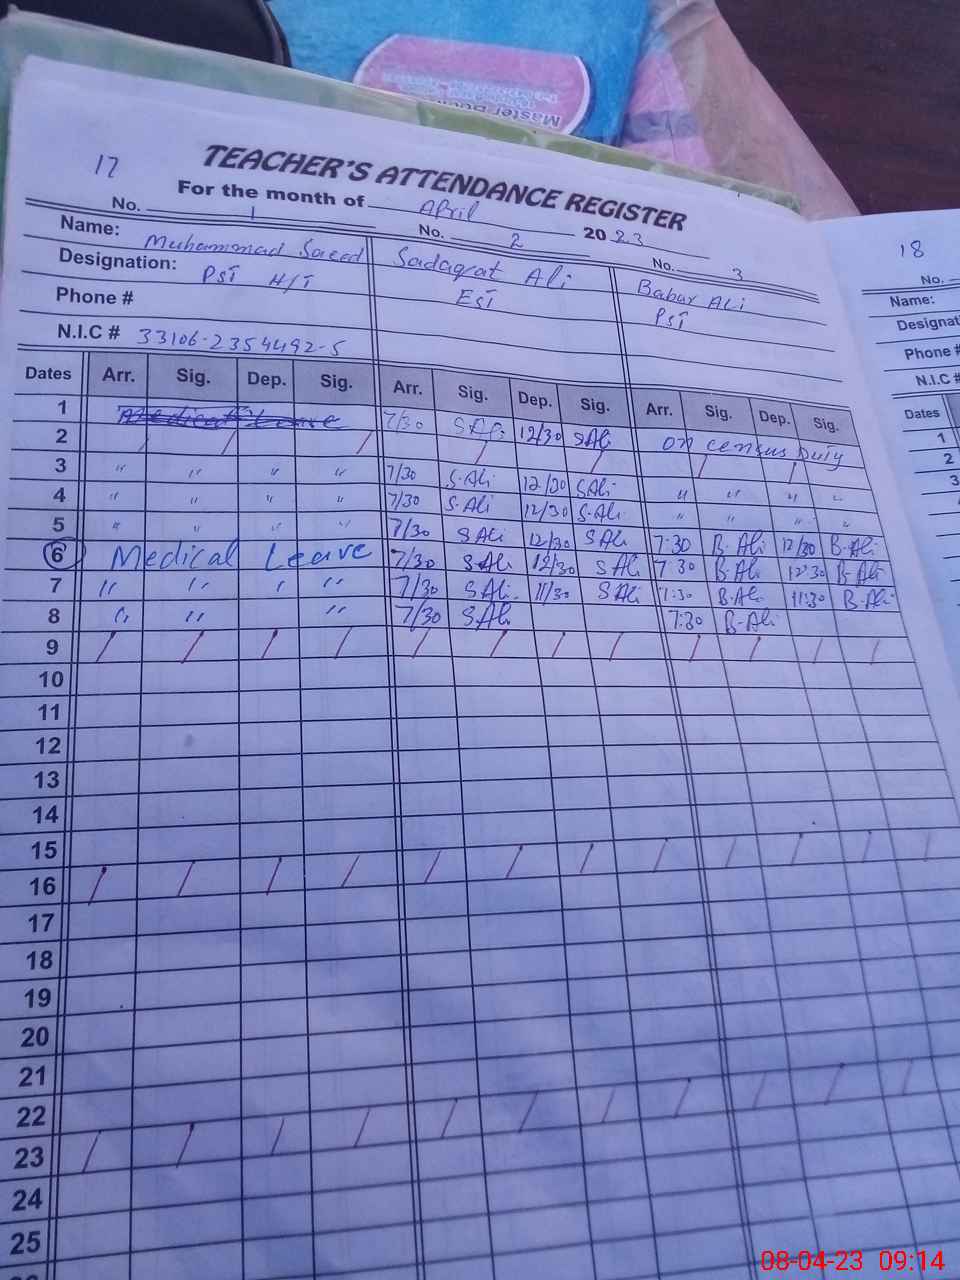 Master
17
TEACHER'S ATTENDANCE REGISTER
For the month of April 2023
No. 1 No. 2 No. 3
Name: Muhammad Saeed Sadaqat Ali Babar Ali
Designation: PST H/T EST PST
Phone #
N.I.C # 33106-2354492-5
Dates Arr. Sig. Dep. Sig. Arr. Sig. Dep. Sig. Arr. Sig. Dep. Sig.
1 Medical Leave 7/30 S.Ali 12/30 SAli on census Duty
2 / / / / / / /
3 " " " " 7/30 S.Ali 12/30 SAli " " " "
4 " " " " 7/30 S.Ali 12/30 S.Ali " " " "
5 " " " " 7/30 SAli 12/30 SAli 7:30 B.Ali 12/30 B-Ali
6 Medical Leave 7/30 SAli 12/30 SAli 7:30 B.Ali 12:30 B-Ali
7 " " " " 7/30 SAli. 11/30 SAli 7:30 B.Ali 11:30 B-Ali
8 " " " 7/30 SAli 7:30 B-Ali
9 / / / / / / / / / / / /
10
11
12
13
14
15
16 / / / / / / / / / / / /
17
18
19
20
21
22
23 / / / / / / / / / / /
24
25
18
No.
Name:
Designati
Phone #
N.I.C #
Dates
1
2
3
08-04-23 09:14